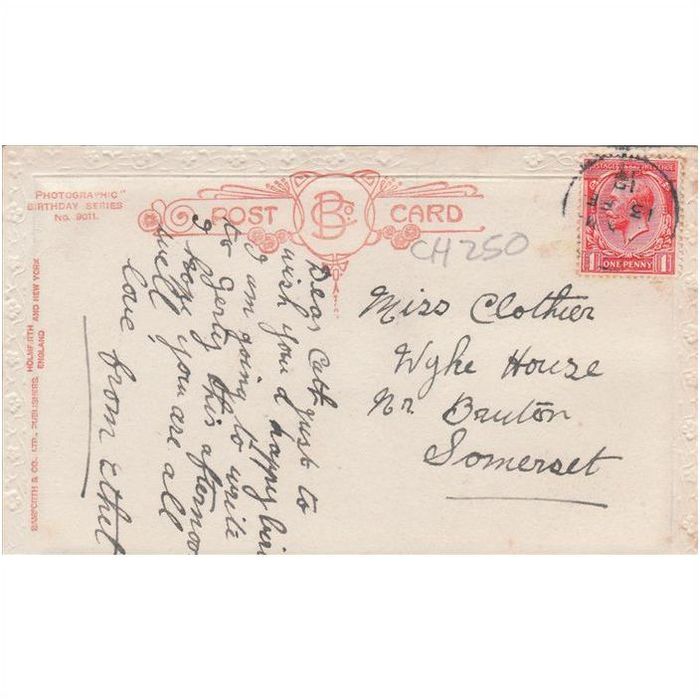 "PHOTOGRAPHIC"
BIRTHDAY SERIES
No. 9011.
BAMFORTH & CO., LTD., PUBLISHERS, HOLMFIRTH AND NEW YORK
ENGLAND
POST CARD
B Co
CH 250
POSTAGE REVENUE
1 ONE PENNY 1
Miss Clothier
Wyke House
Nr Bruton
Somerset
Dear Cath just to
wish you a happy bir
I am going to write
to this afternoo
I hope you are all
well
love from Ethel